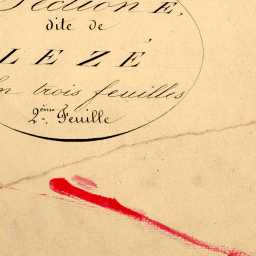 Section E.
dite de
LEZÉ
en trois feuilles
2ème Feuille